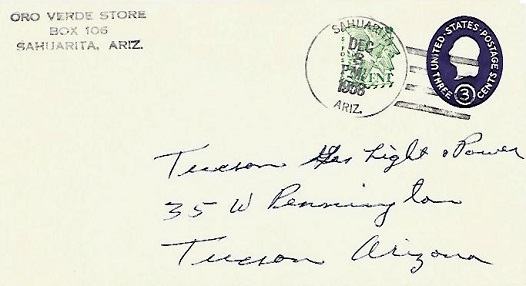 ORO VERDE STORE
BOX 106
SAHUARITA, ARIZ.
SAHUARITA
DEC
PM
1958
ARIZ.
CENT
UNITED·STATES·POSTAGE
THREE 3 CENTS
Tucson Gas Light & Power
35 W Pennington
Tucson Arizona